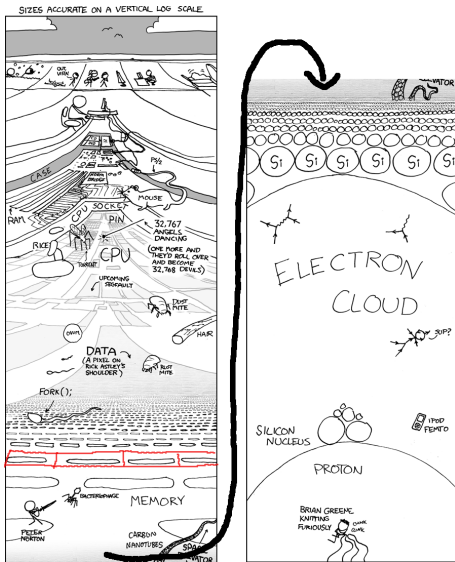 SIZES ACCURATE ON A VERTICAL LOG SCALE
CASE
PS/2
MOUSE
RAM
CPU SOCKET
PIN
32,767
ANGELS
DANCING
(ONE MORE AND
THEY'D ROLL OVER
AND BECOME
32,768 DEVILS)
RICE
TORRENT
CPU
UPCOMING
SEGFAULT
DUST
MITE
OHM
HAIR
DATA
(A PIXEL ON
RICK ASTLEY'S
SHOULDER)
RUST
MITE
FORK();
BACTERIOPHAGE
MEMORY
PETER
NORTON
CARBON
NANOTUBES
SPACE
VATOR
VATOR
Si Si Si Si Si Si
ELECTRON
CLOUD
SUP?
IPOD
FEMTO
SILICON
NUCLEUS
PROTON
BRIAN GREENE
KNITTING
FURIOUSLY